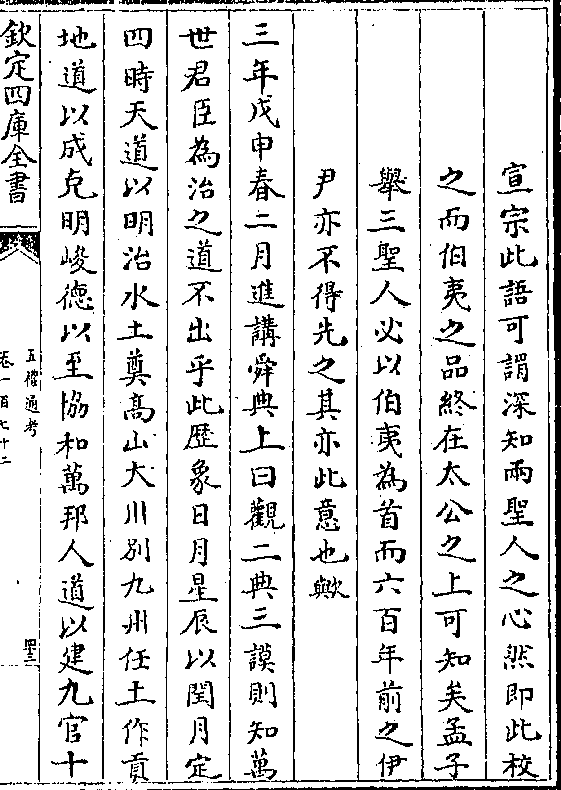 宣宗此語可謂深知兩聖人之心然即此校
之而伯夷之品終在太公之上可知矣孟子
舉三聖人必以伯夷為首而六百年前之伊
尹亦不得先之其亦此意也歟
三年戊申春二月進講舜典上曰觀二典三謨則知萬
世君臣為治之道不出乎此歴象日月星辰以閏月定
四時天道以明治水土奠髙山大川别九州任土作貢
地道以成克明峻德以至協和萬邦人道以建九官十
欽定四庫全書
五禮通考
卷一百七十二